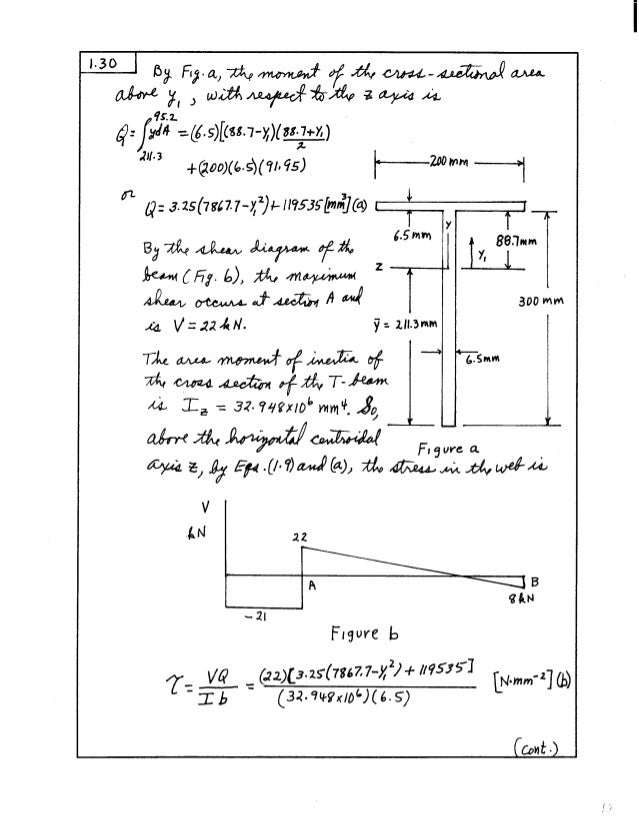 1.30
By Fig. a, the moment of the cross-sectional area
above y₁, with respect to the z axis is
Q = ∫ydA = (6.5)[(88.7-y₁)(88.7+y₁)/2]
95.2
211.3
+(200)(6.5)(91.95)
or
Q = 3.25(7867.7-y₁²)+119535 [mm³] (a)
By the shear diagram of the
beam (Fig. b), the maximum
shear occurs at section A and
is V = 22 kN.
The area moment of inertia of
the cross section of the T-beam
is I_z = 32.948x10⁶ mm⁴. So,
above the horizontal centroidal
axis z, by Eqs. (1.9) and (a), the stress in the web is
200 mm
6.5 mm
y
y₁
88.7mm
z
300 mm
ȳ = 211.3 mm
6.5mm
Figure a
V
kN
22
A
B
8 kN
-21
Figure b
τ = VQ/Ib = (22)[3.25(7867.7-y₁²)+119535]/(32.948x10⁶)(6.5) [N·mm⁻²] (b)
(cont.)